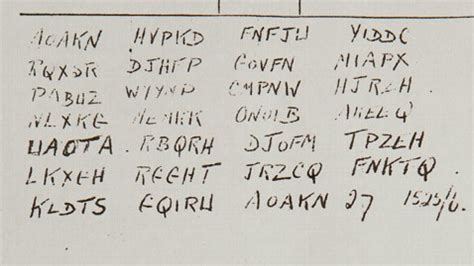 AOAKN HVPKD FNFJW YIDDC
RQXSR DJHFP GOVFN MIAPX
PABUZ WYYNP CMPNW HJRZH
NLXKG MEMKK ONOIB AKEEQ
UAOTA RBQRH DJOFM TPZEH
LKXGH RGGHT JRZCQ FNKTQ
KLDTS GQIRW AOAKN 27 1525/6.